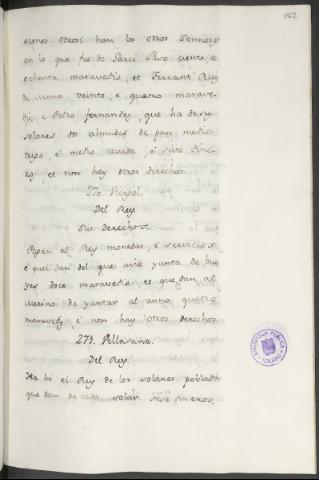 162
en lo que fue de Garci Laso ciento e
ochenta maravedis, et Ferrant Ruiz
veinte, e quatro marave-
dis, e Pedro fernandez, que ha de seys
solares dos almudes de pan medio
trigo, e medio cevada, e siete dine-
ros, et non hay otros derechos.
270. Vierpol.
Del Rey.
Sus derechos.
Pagan al Rey monedas, e servicios
e quel dan del que avie yunta de bue
yes doce maravedis, et que dan al
Merino de yantar al anno quatro
maravedis, e non hay otros derechos.
271. Villasana.
Del Rey.
Ha hi el Rey de los solares poblados
que dan de cada solar siete dineros,
BIBLIOTECA PUBLICA